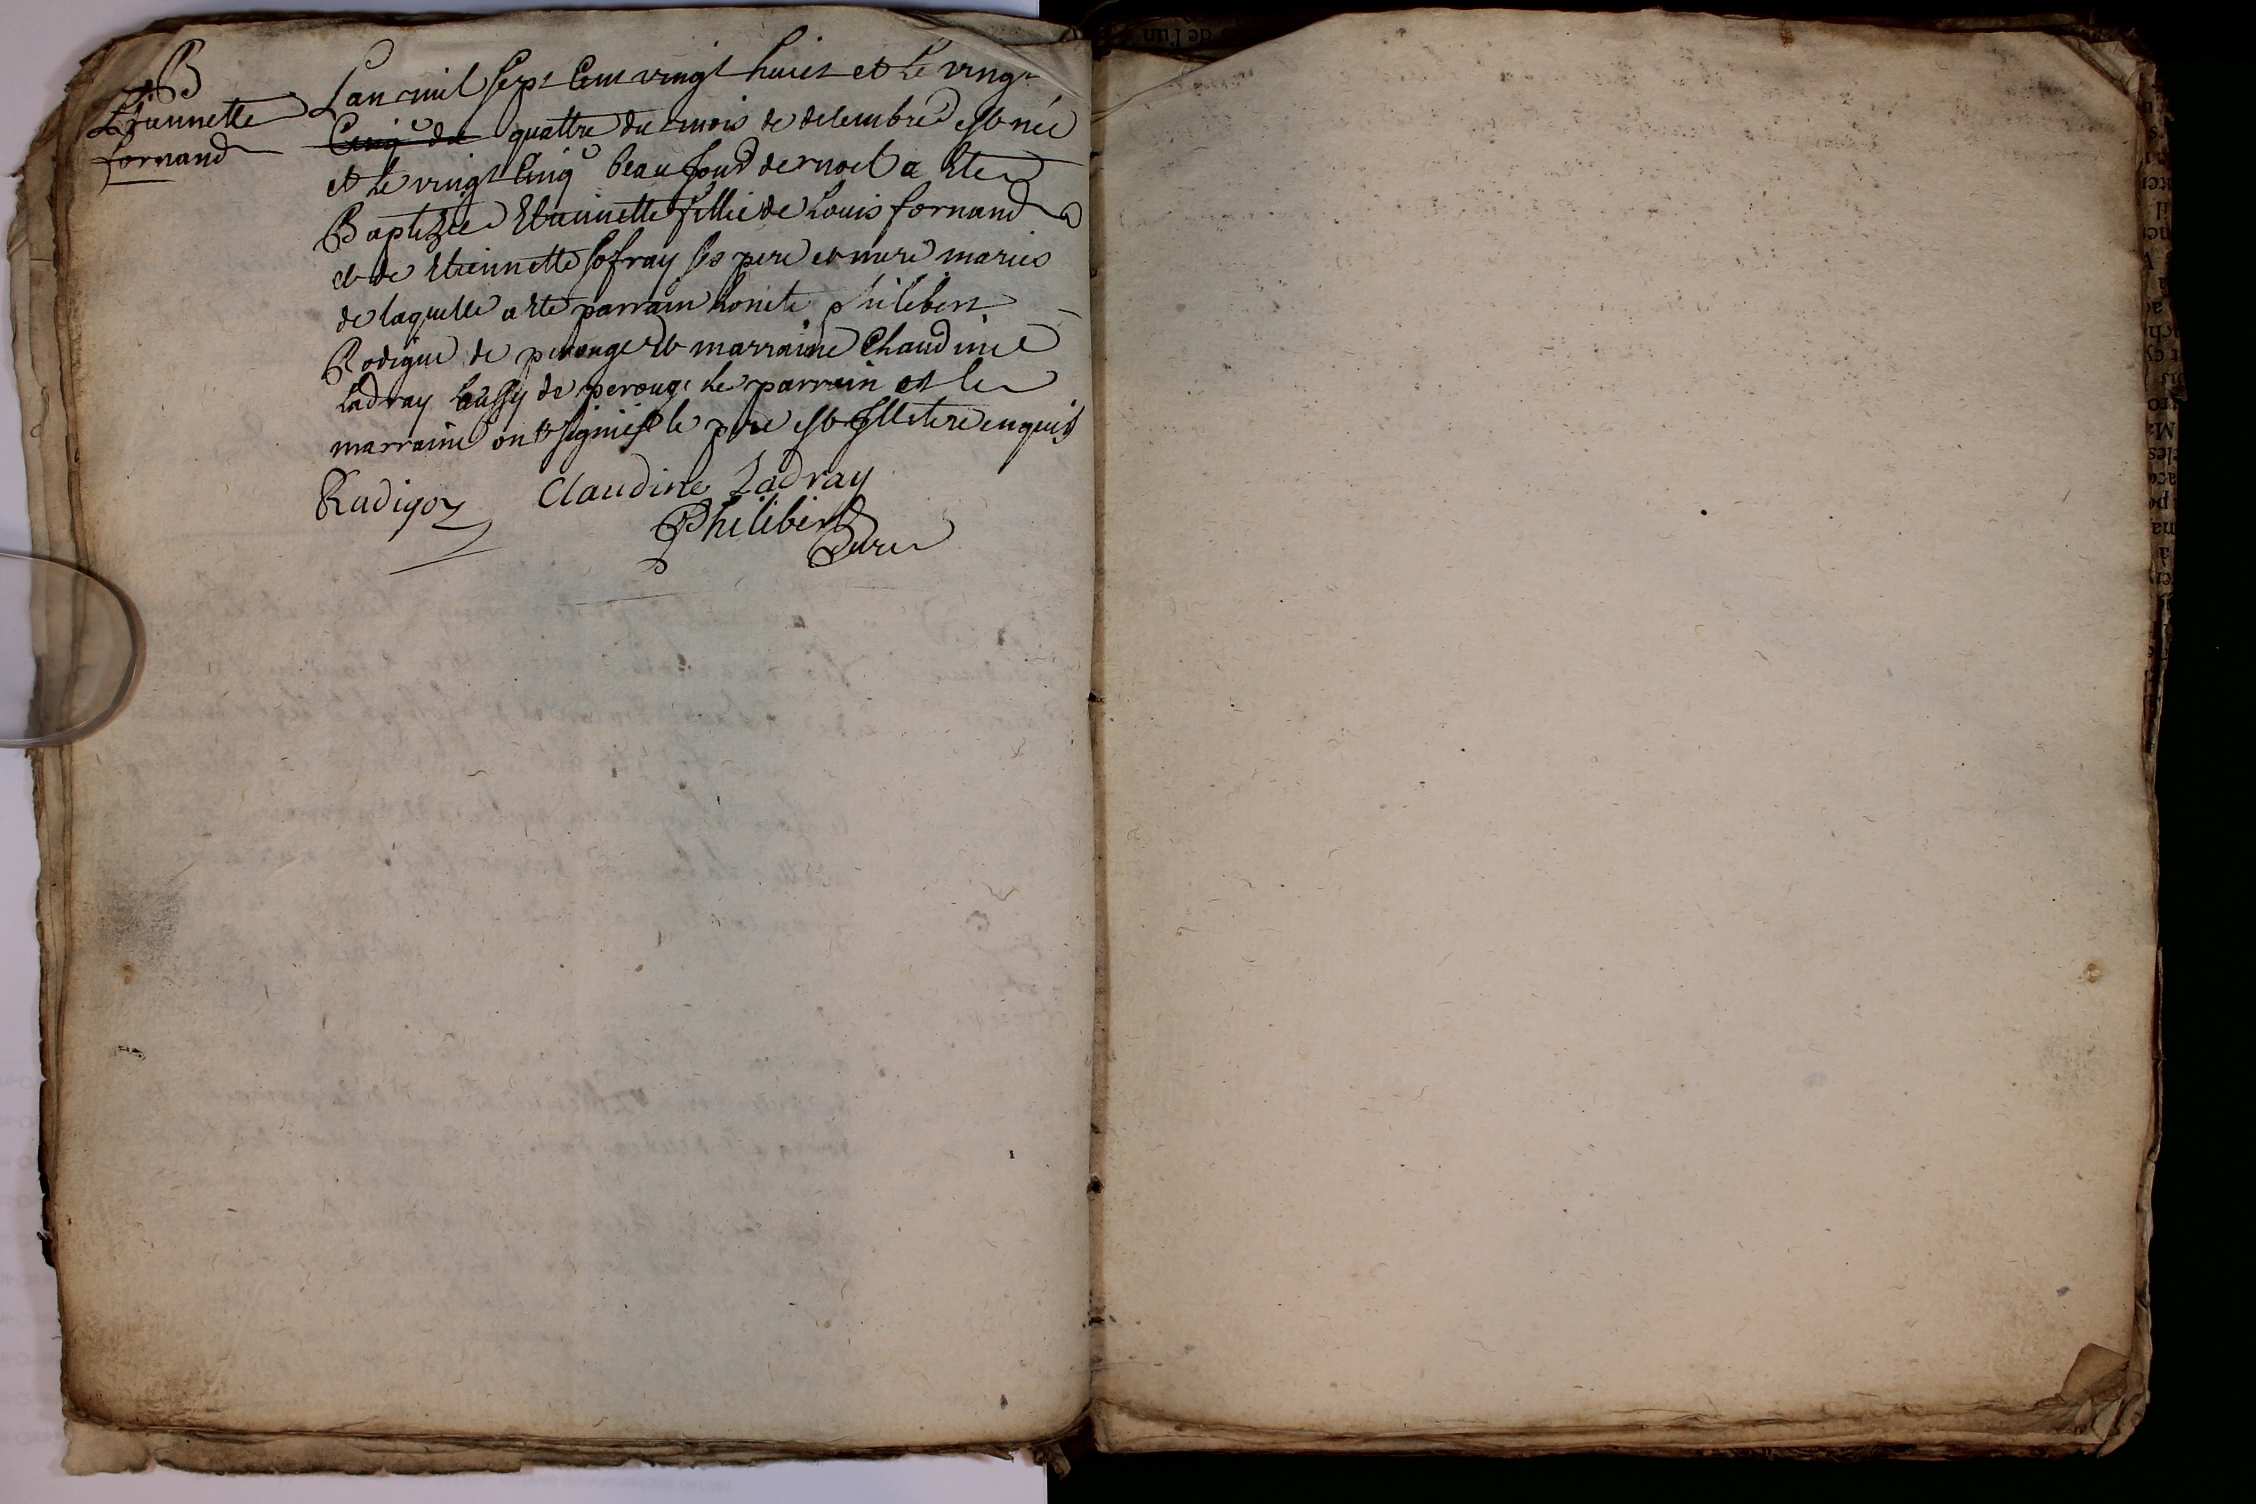 B
Etiennette
fornand
L'an mil sept cent vingt huict et le vingt
cinq du quattre du mois de decembre est née
et le vingt cinq beau jour de noel a ete
Baptizée Etiennette fillie de Louis fornand
et de Etiennette Jofray ses pere et mere mariés
de laquelle a ete parrain honete philibert
Rodigue de perouge et marraine Claudine
Ladray aussy de perouge le parrain et la
marraine ont signés le pere est Illetere enquis
Radigoz Claudine Ladray
Philibert
Curé